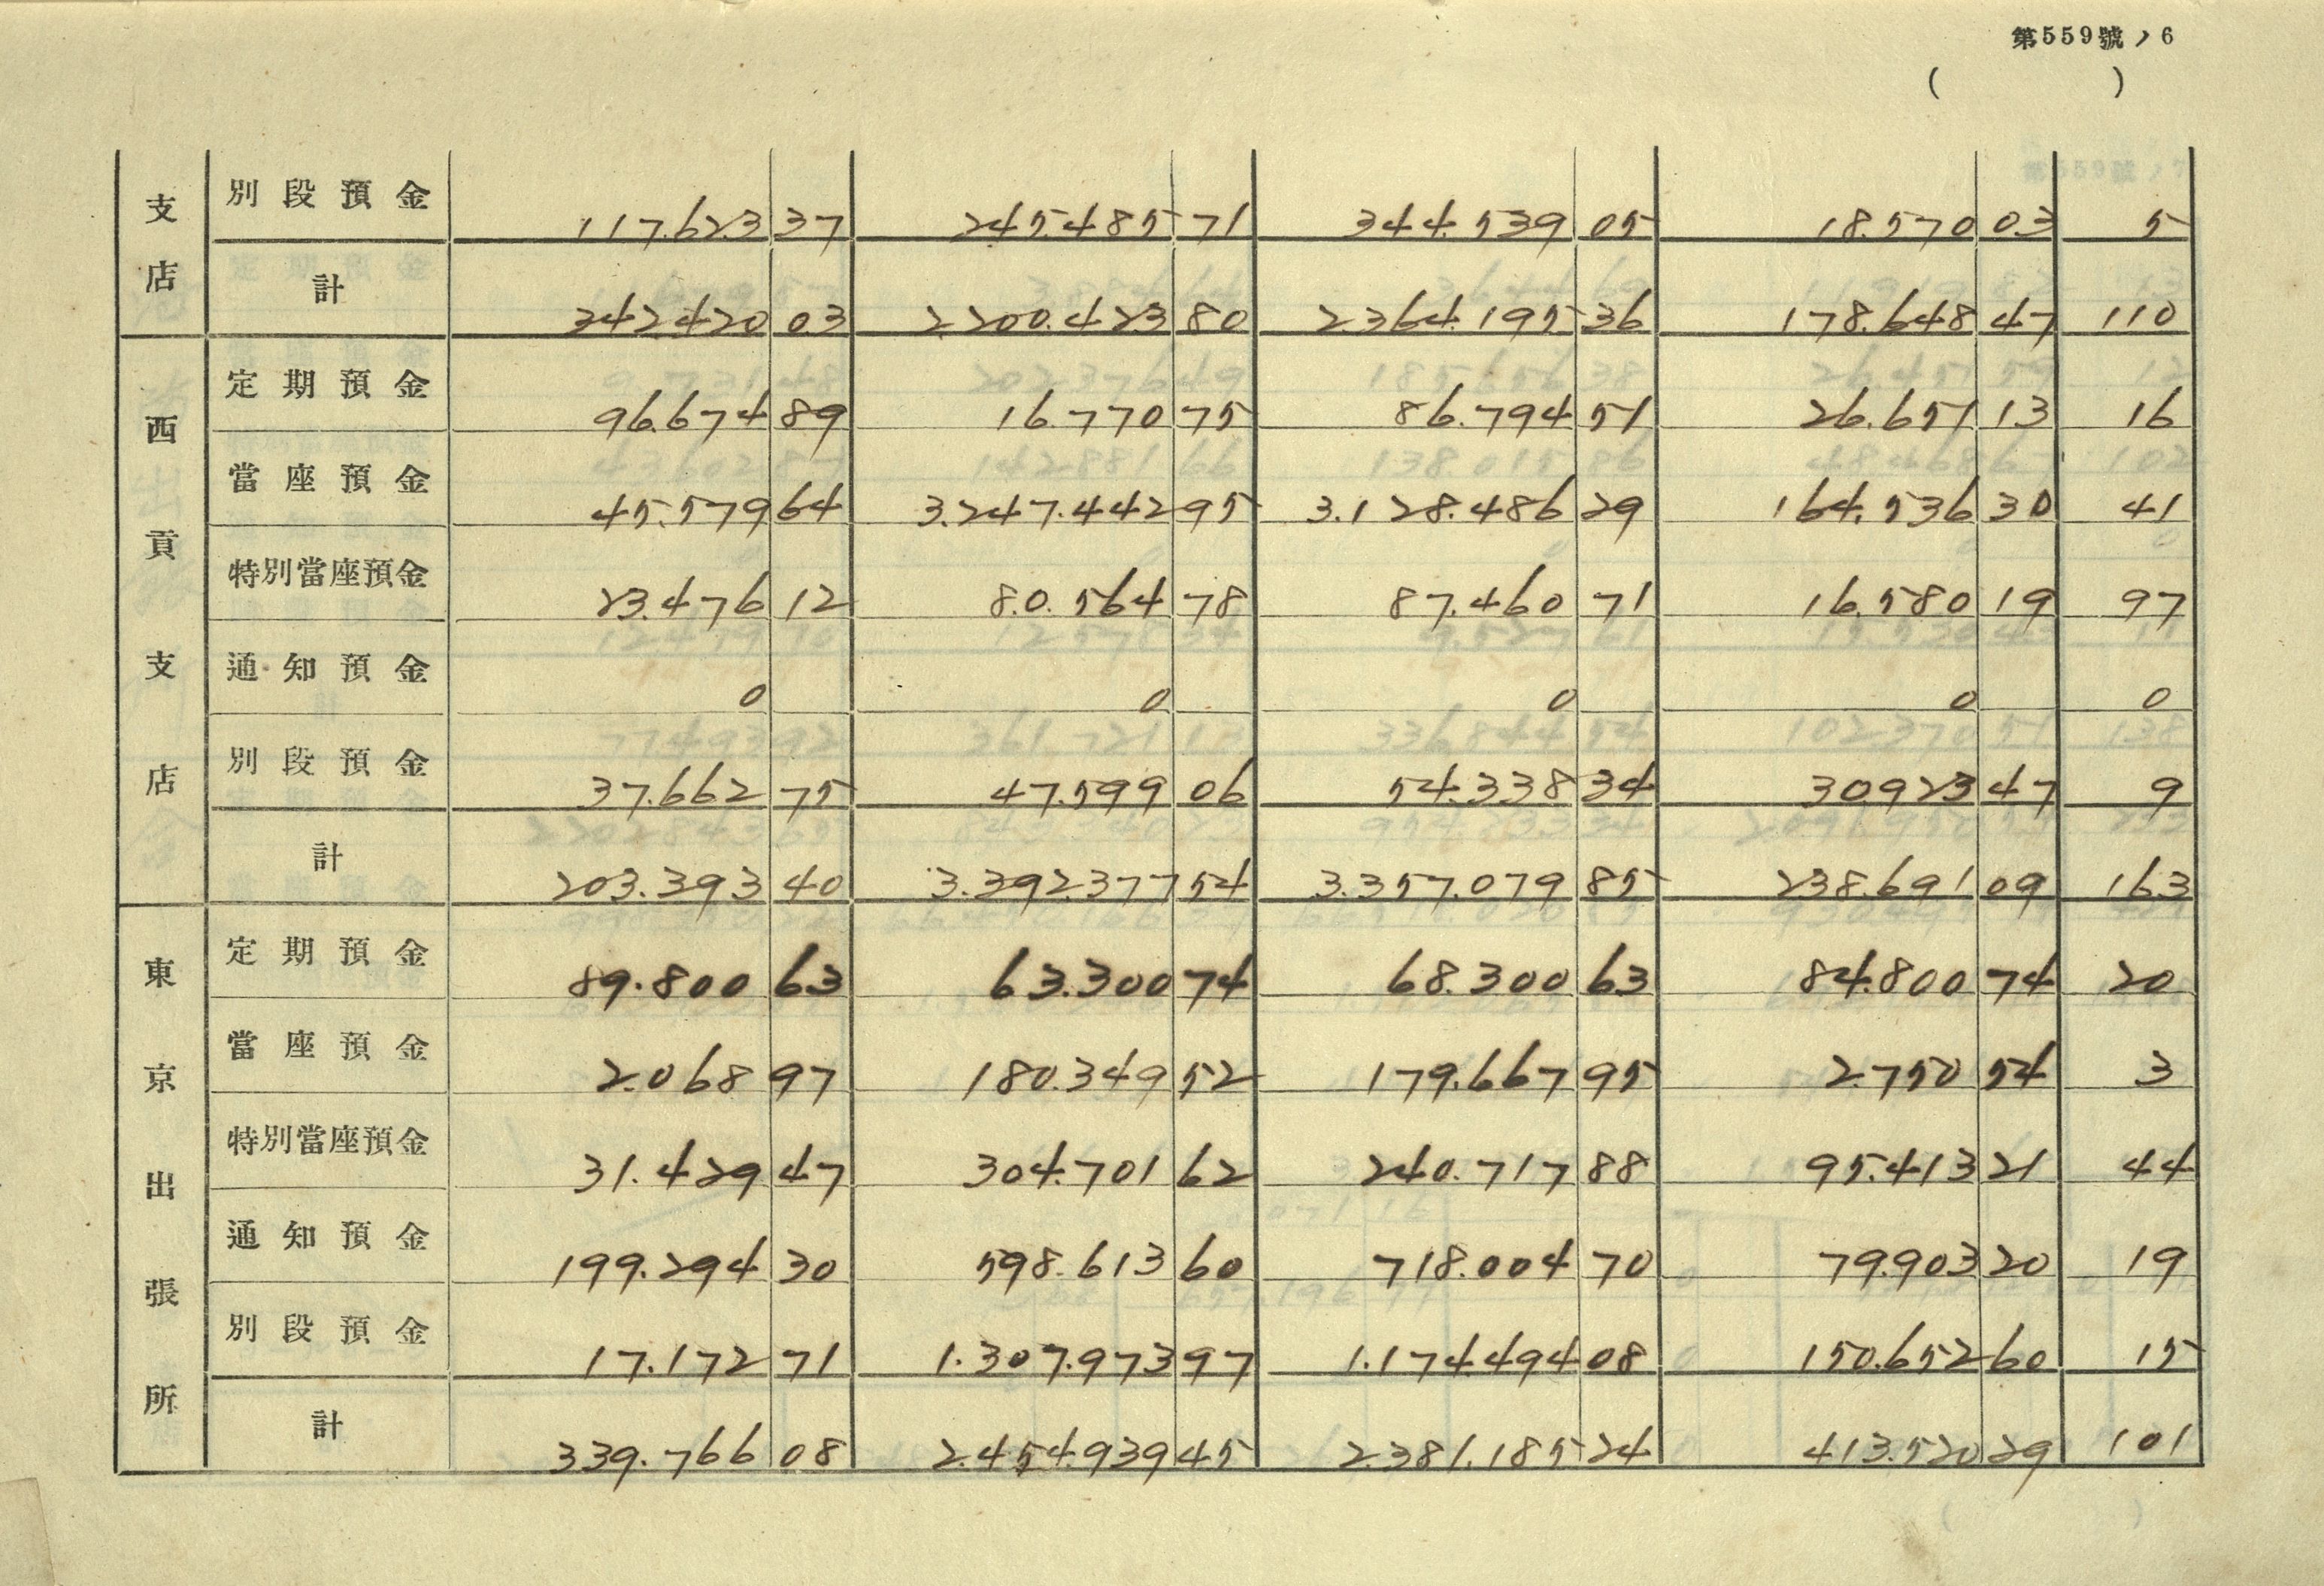 第559號ノ6
( )
支店
別段預金 117.623 37 245.485 71 344.539 05 18.570 03 5
計 342420 03 2200.423 80 2364.195 36 178.648 47 110
西貢支店
定期預金 96.674 89 16.770 75 86.794 51 26.651 13 16
當座預金 45.579 64 3.247.442 95 3.128.486 29 164.536 30 41
特別當座預金 23.476 12 8.0.564 78 87.460 71 16.580 19 97
通知預金 0 0 0 0 0
別段預金 37.662 75 47.599 06 54.338 34 30923 47 9
計 203.393 40 3.392.377 54 3.357.079 85 238.691 09 163
東京出張所
定期預金 89.800 63 63.300 74 68.300 63 84.800 74 20
當座預金 2.068 97 180.349 52 179.667 95 2.750 54 3
特別當座預金 31.429 47 304.701 62 240.717 88 95.413 21 44
通知預金 199.294 30 598.613 60 718.004 70 79.903 20 19
別段預金 17.172 71 1.307.973 97 1.174.494 08 150.652 60 15
計 339.766 08 2.454.939 45 2.381.185 24 413.520 29 101